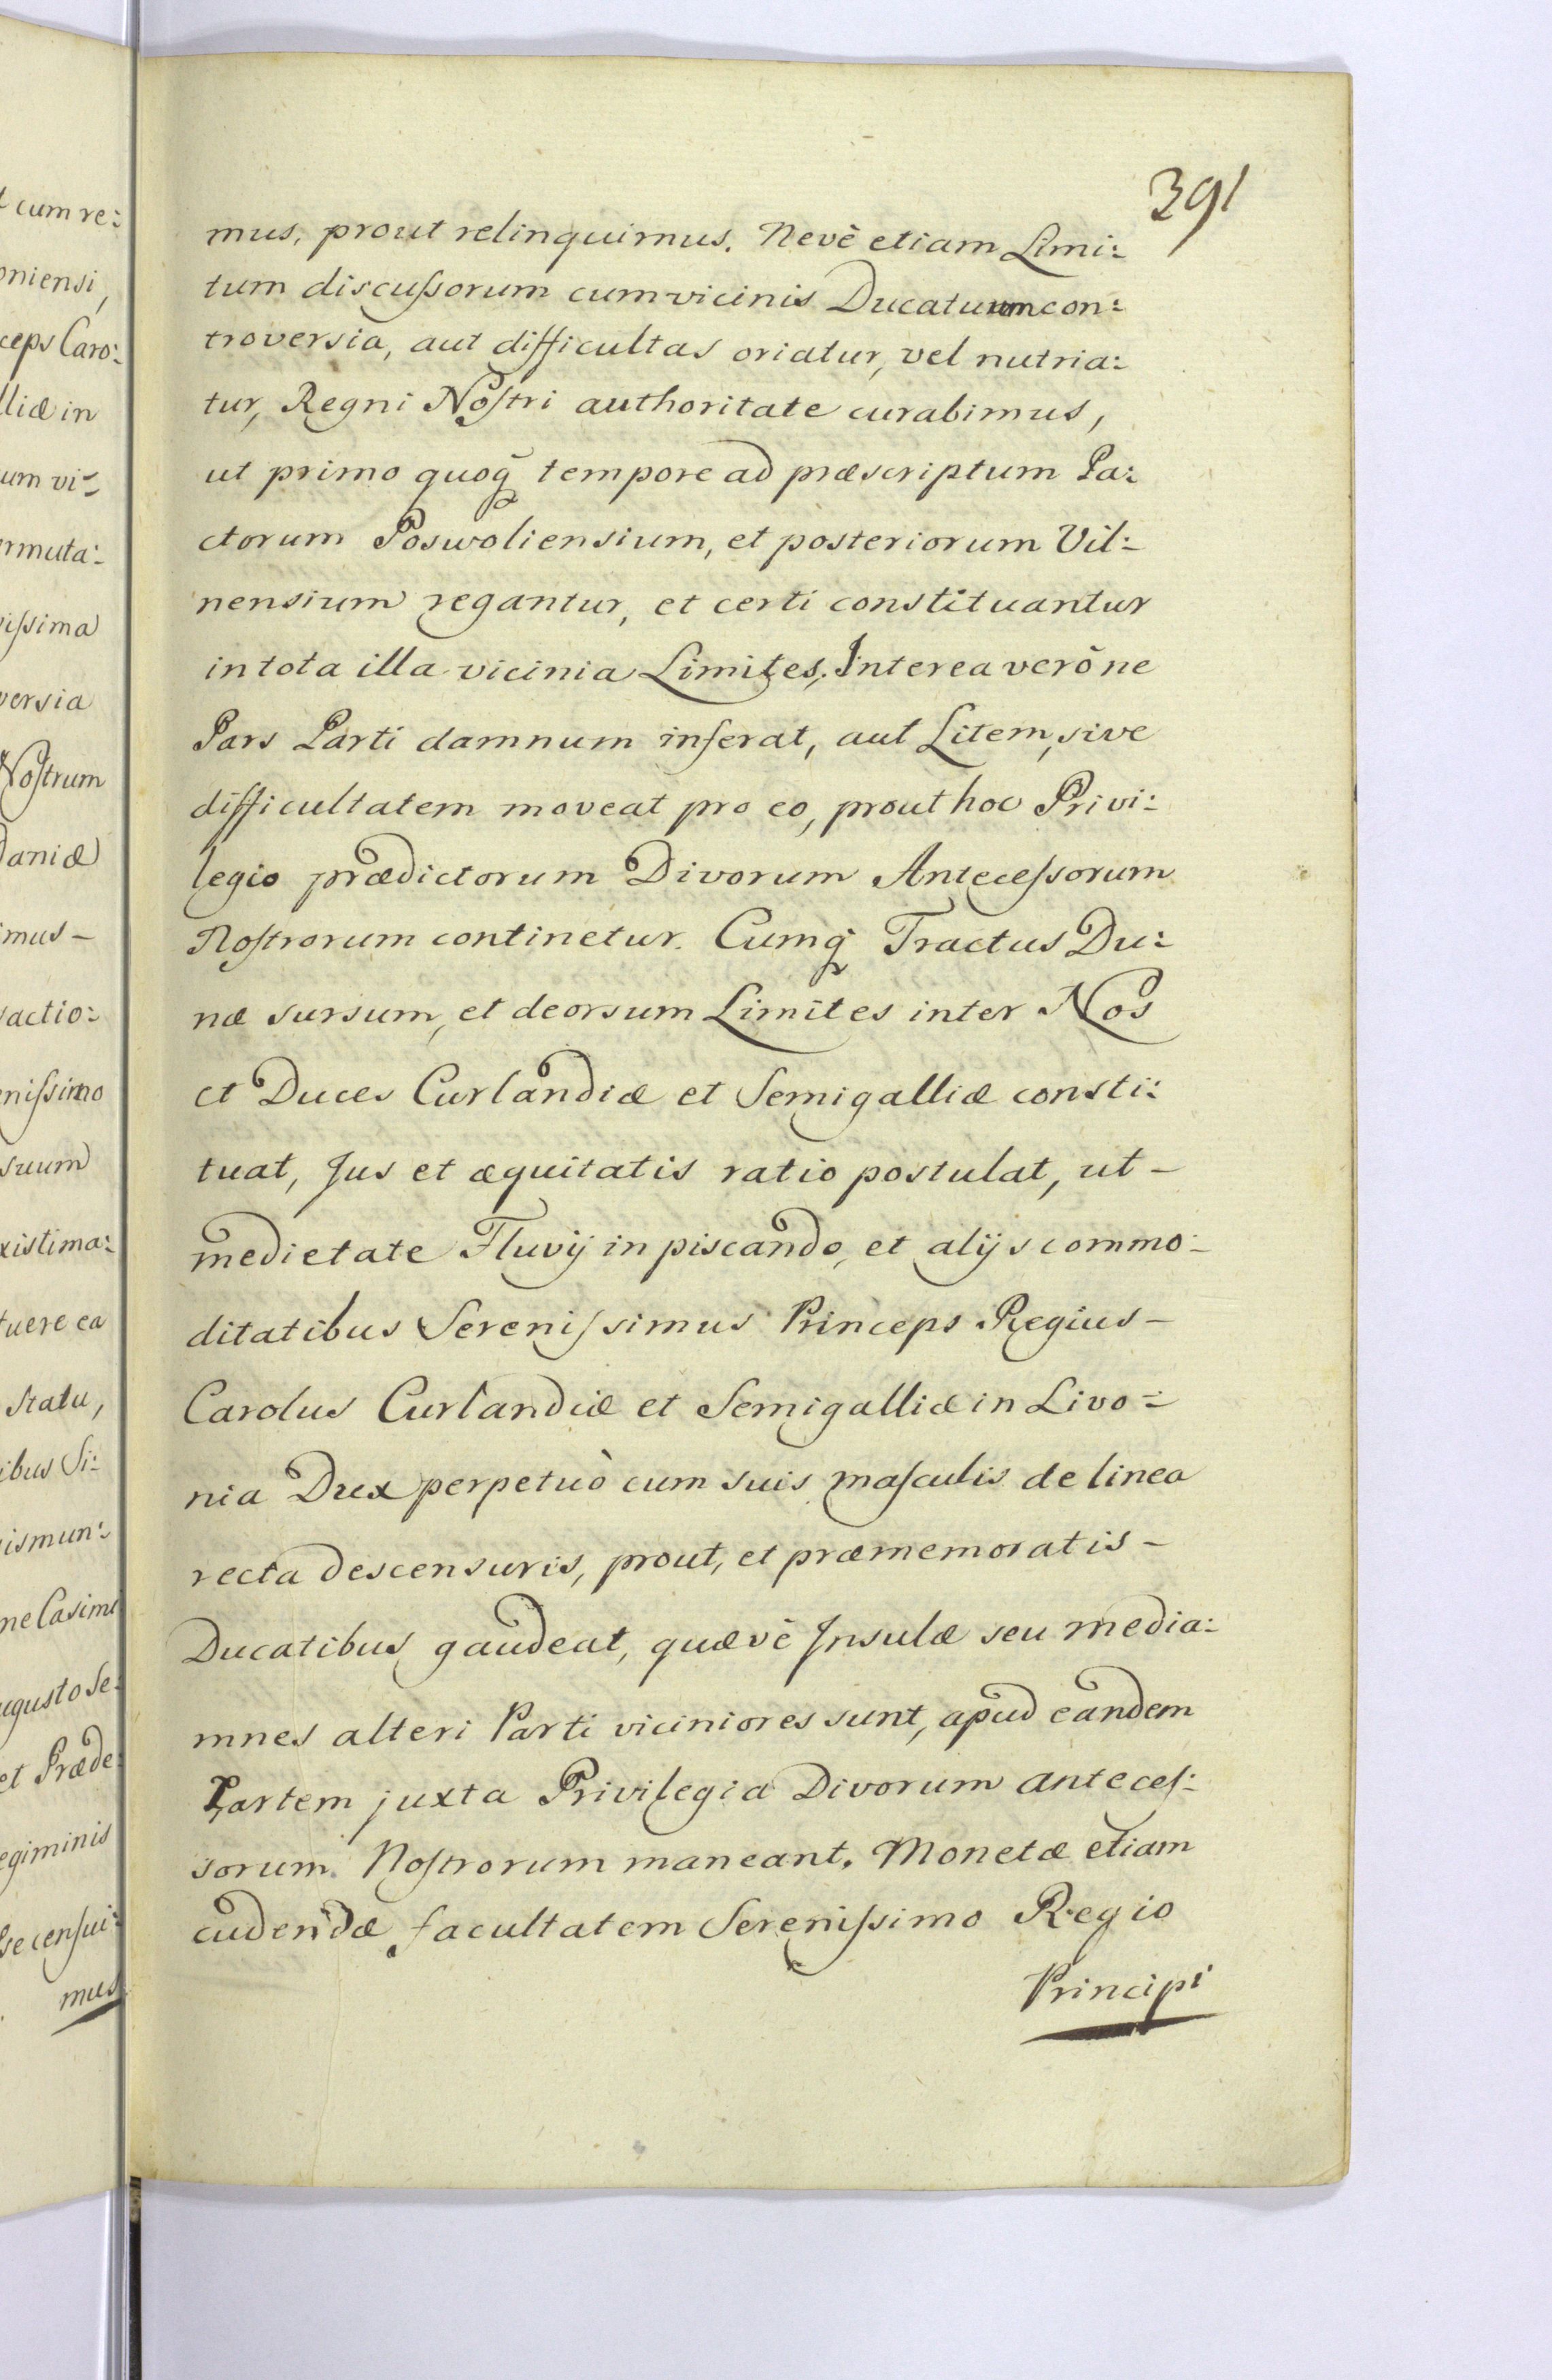 391
mus, prout relinquimus. Nevè etiam Limi:
tum discuſsorum cum vicinis Ducatuum con:
troversia, aut difficultas oriatur, vel nutria:
tur, Regni Noſtri authoritate curabimus,
ut primo quoq̃ tempore ad præscriptum Pa:
ctorum Poswoliensium, et posteriorum Vil:
nensium regantur, et certi constituantur
in tota illa vicinia Limites, Interea verò ne
Pars Parti damnum inferat, aut Litem, sive
difficultatem moveat pro eo, prout hoc Privi:
legio prædictorum Divorum Anteceſsorum
Noſtrorum continetur. Cumq̃ Tractus Du:
næ sursum, et deorsum Limites inter Nos
et Duces Curlandiæ et Semigalliæ consti:
tuat, Jus et æquitatis ratio postulat, ut –
medietate Fluvij in piscando, et alijs commo:
ditatibus Sereniſsimus Princeps Regius –
Carolus Curlandiæ et Semigalliæ in Livo:
nia Dux perpetuò cum suis maſculis de linea
recta descensuris, prout, et præmemoratis –
Ducatibus gaudeat, quævè Jnsulæ seu media:
mnes alteri Parti viciniores sunt, apud eandem
Partem juxta Privilegia Divorum anteceſ:
sorum Noſtrorum maneant. Monetæ etiam
cudendæ facultatem Sereniſsimo Regio
Principi
t cum re:
oniensi,
ceps Caro:
lliæ in
um vi:
ermuta:
viſsima
versia
Noſtrum
daniæ
imus –
actio:
niſsimo
suum
xistima:
tuere ea
statu,
ibus Si:
gismun:
ne Casimi
ugusto Se:
et Præde:
egiminis
se cenſui:
mus